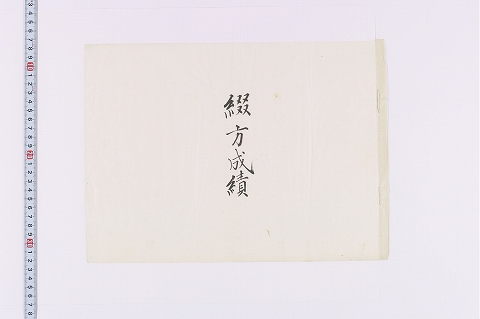 綴方成績